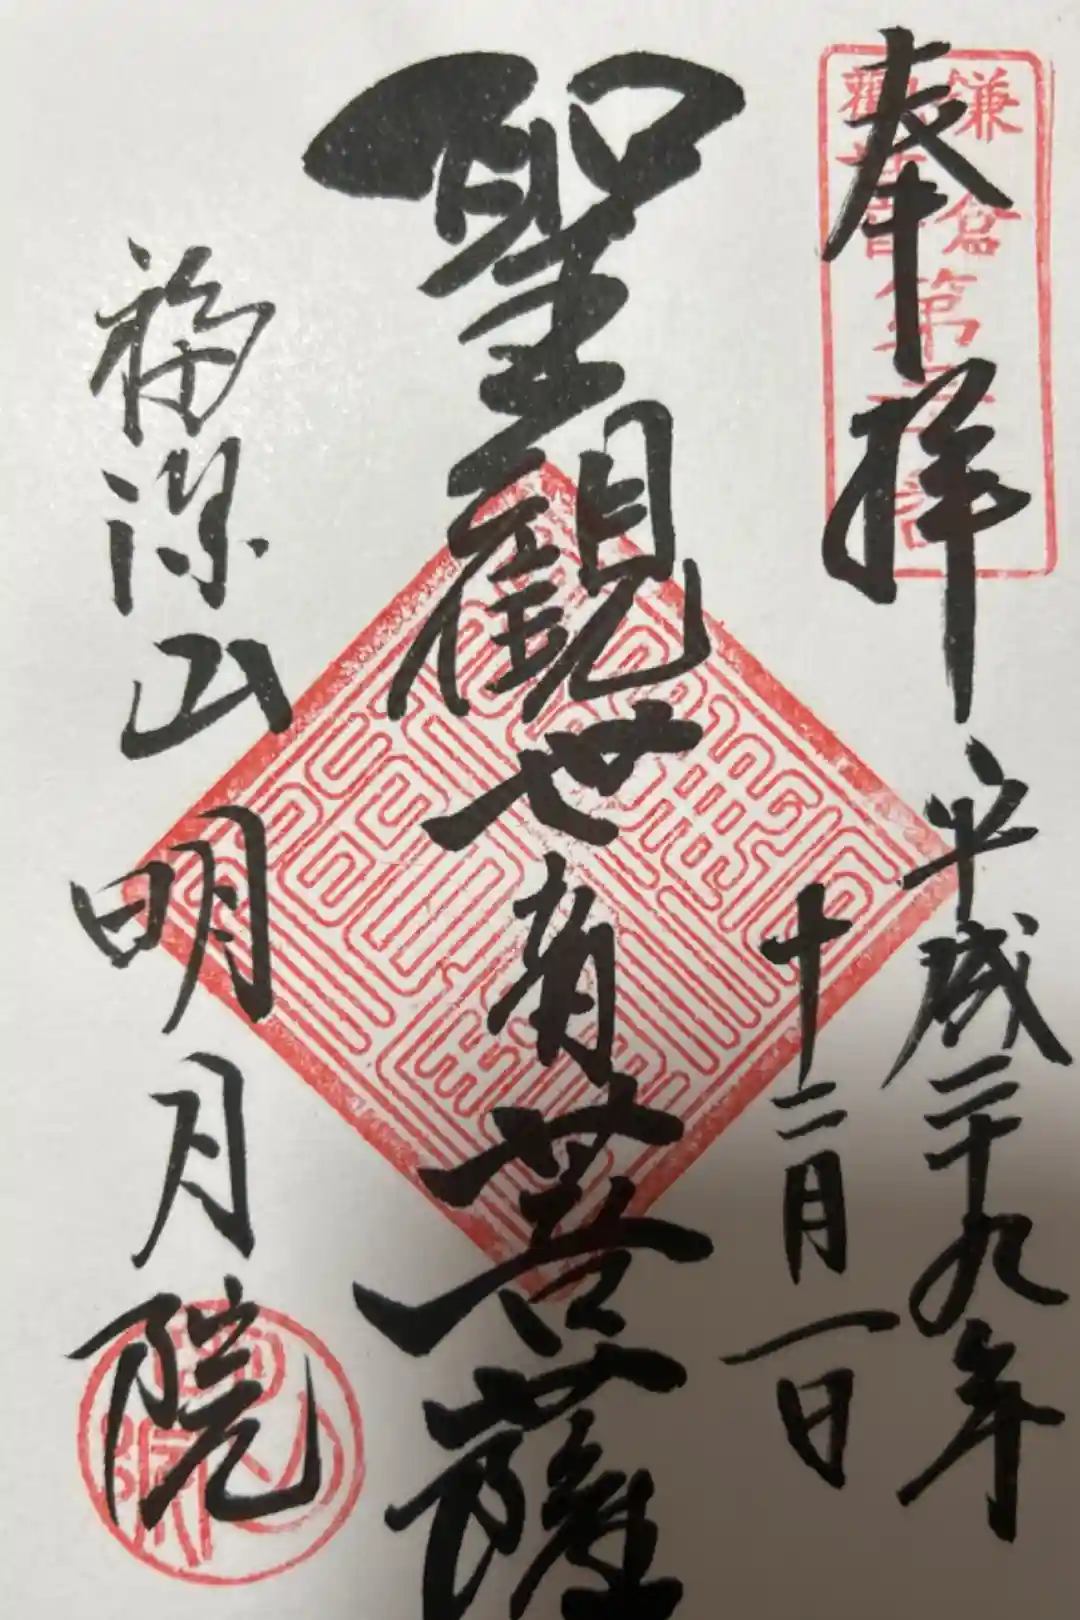 奉拝
平成二十九年
十二月一日
聖観世音菩薩
福源山明月院
鎌倉
観音第三十